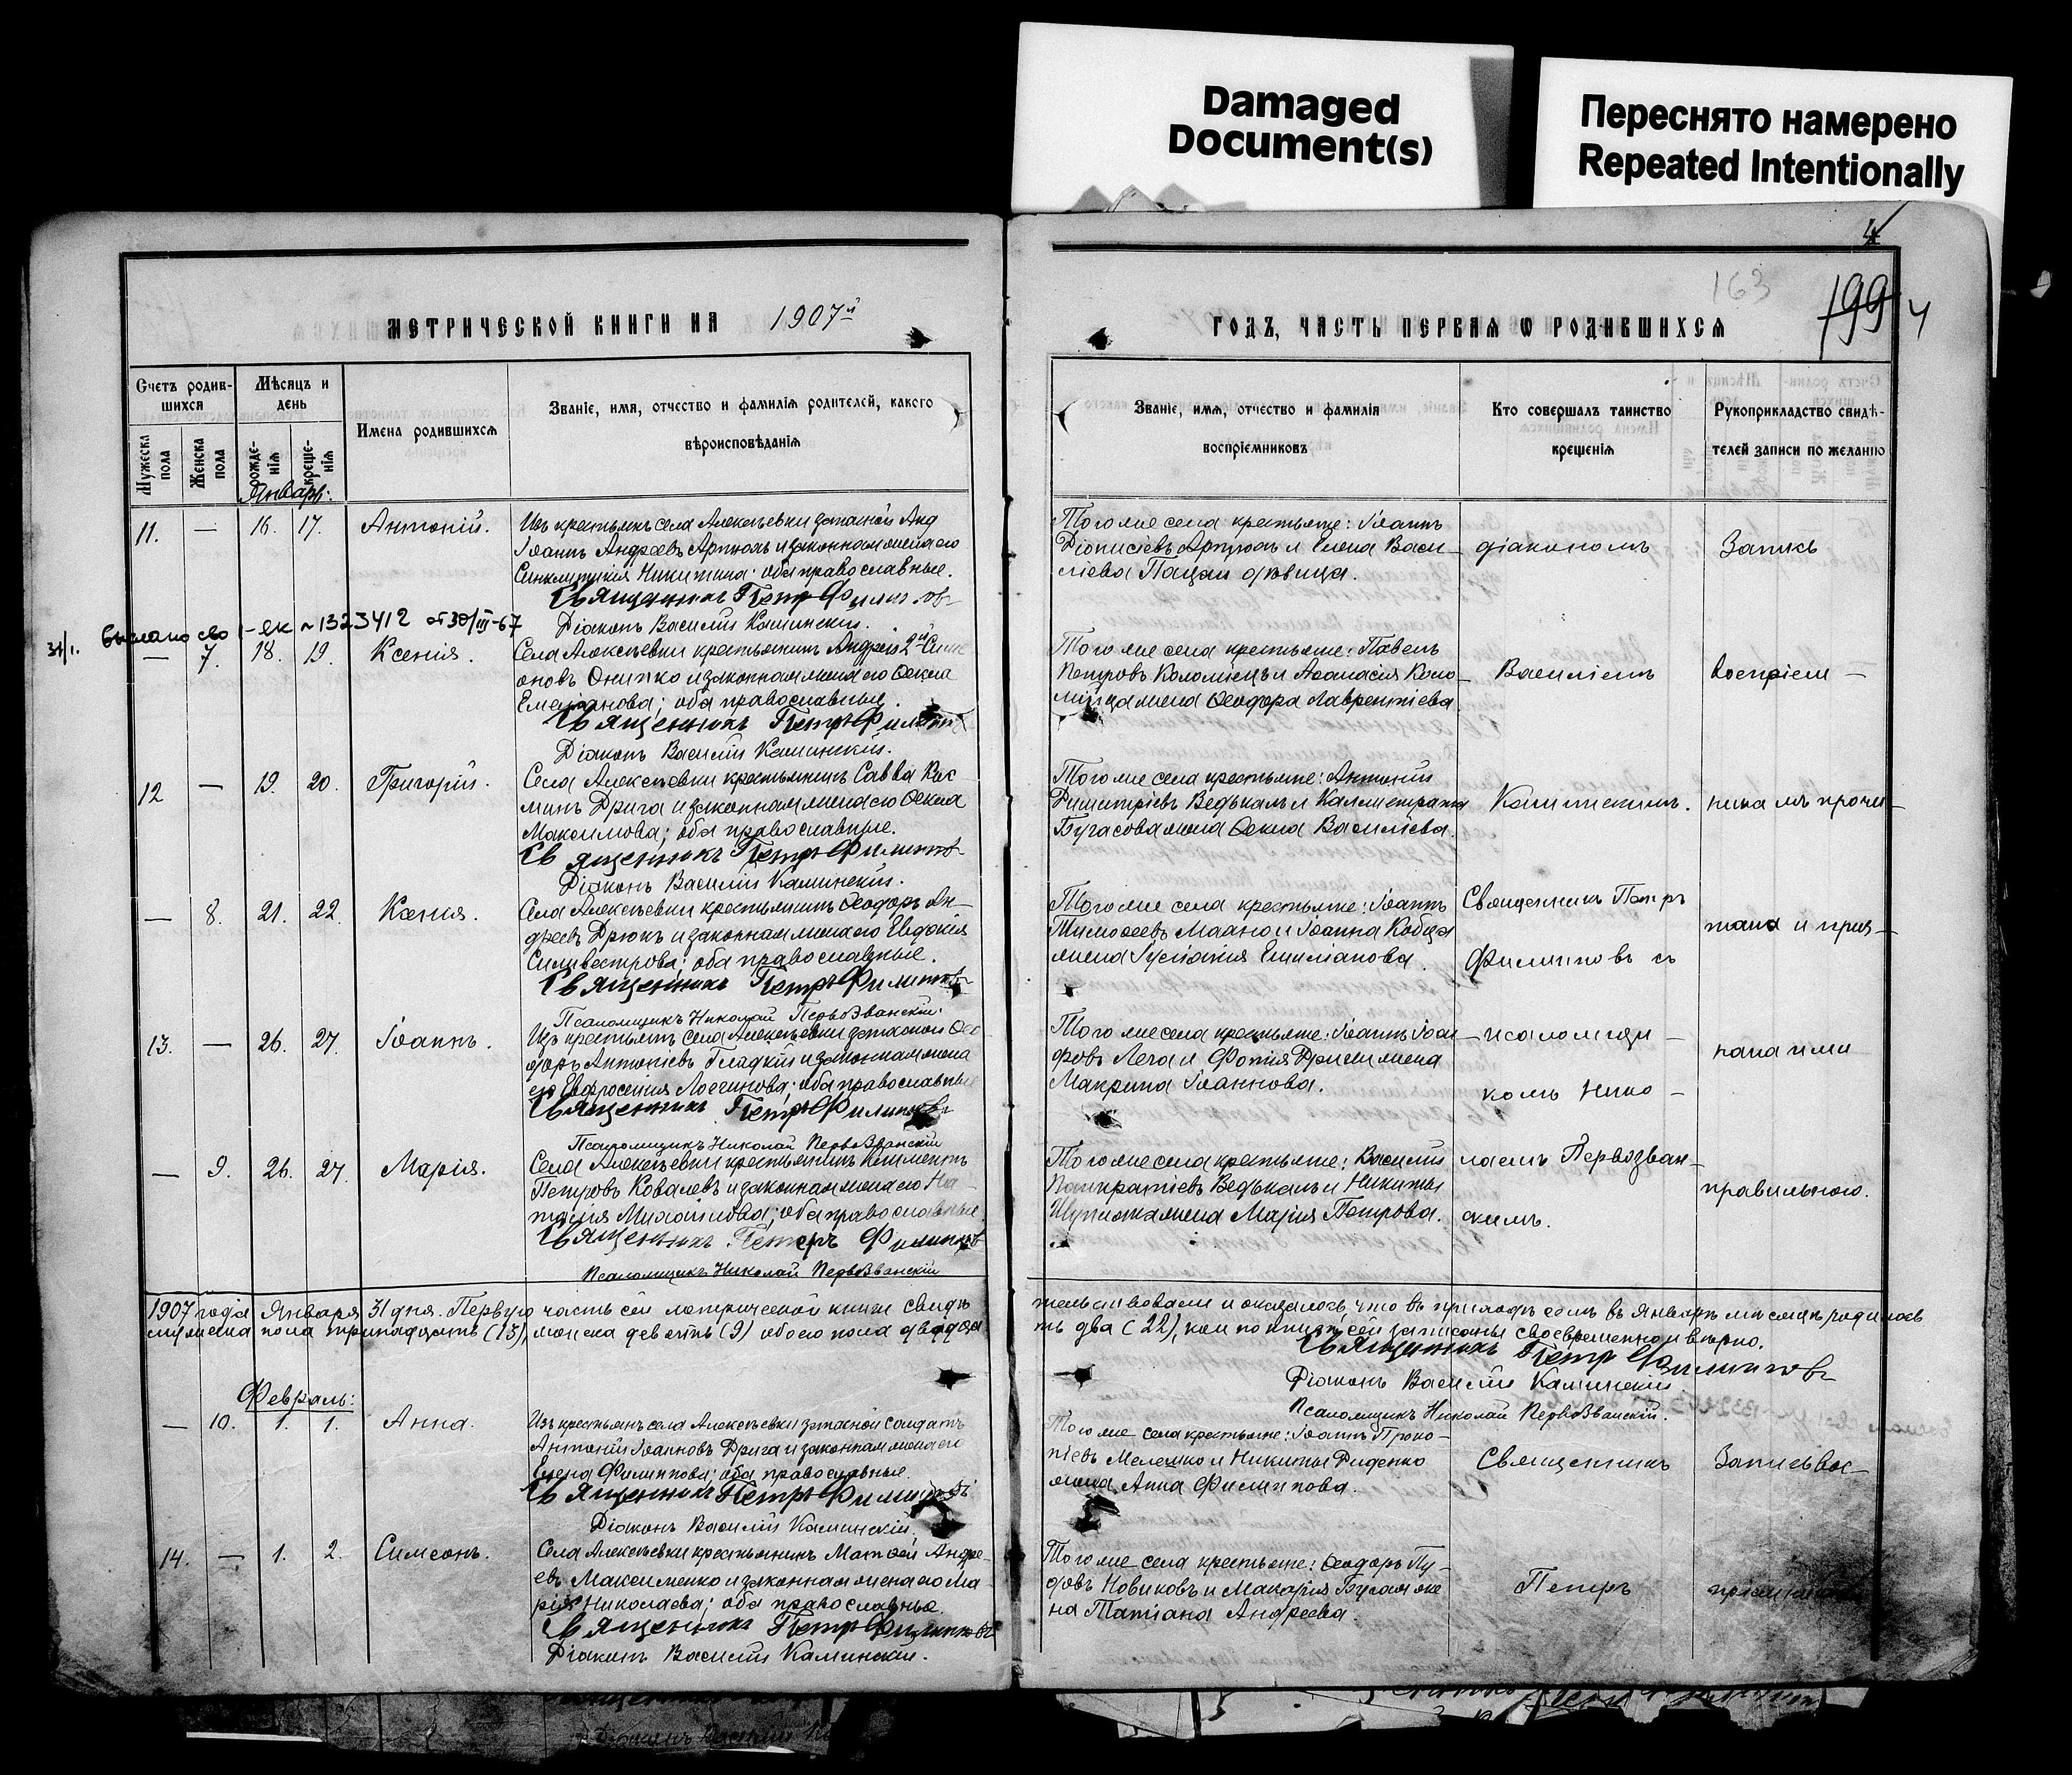 Damaged
Document(s)
Переснято намерено
Repeated Intentionally
4
163
199 4
МЕТРИЧЕСКОЙ КНИГИ НА 1907й
ГОДЪ, ЧАСТЬ ПЕРВАЯ Ѡ РОДИВШИХСЯ
Счетъ родив-
шихся
Мужеска пола
Женска пола
Мѣсяцъ и
день
рожде-
нія
креще-
нія
Имена родившихся
Званіе, имя, отчество и фамилія родителей, какого
вѣроисповѣданія
Званіе, имя, отчество и фамилія
воспріемниковъ
Кто совершалъ таинство
крещенія
Рукоприкладство свидѣ-
телей записи по желанію
Январь:
11. — 16. 17. Антоній.
Изъ крестьянъ села Алексѣевки запасной
Іоаннъ Андреевъ Артюхъ и законная жена его
Синклитикія Никитина; оба православные.
Священникъ Петръ Филиповъ
Діаконъ Василій Каминскій.
Того же села крестьяне: Іоаннъ
Діонисіевъ Артюхъ и Елена Васи-
ліева Пацан дѣвица.
діакономъ
выслано св 1-ЕК №1323412 от 30/III-67
31/1.
— 7. 18. 19. Ксенія.
Села Алексѣевки крестьянинъ Андрей 2й Симе
оновъ Онипко и законная жена его Ѳекла
Емеліанова; оба православные.
Священникъ Петръ Филиповъ
Діаконъ Василій Каминскій.
Того же села крестьяне: Павелъ
Петровъ Коломіецъ и Аѳанасія Коло-
мійца жена Ѳеодора Лаврентіева
Василіемъ
воспріем —
12 — 19. 20. Григорій.
Села Алексѣевки крестьянинъ Савва
Дрига и законная жена его Ѳекла
Максимова; оба православные.
Священникъ Петръ Филиповъ
Діаконъ Василій Каминскій.
Того же села крестьяне: Антоній
Димитріевъ Ведькалъ и Каллистрата
Бугасова жена Ѳекла Василіева.
Каминскимъ.
— 8. 21. 22. Ксенія.
Села Алексѣевки крестьянинъ Ѳеодоръ Ан-
дреевъ Дрюкъ и законная жена его Евдокія
Сильвестрова; оба православные.
Священникъ Петръ Филиповъ
Псаломщикъ Николай Первозванскій.
Того же села крестьяне: Іоаннъ
Тимоѳеевъ и Іоанна Кобца
жена Іустинія Емиліанова.
Священникъ Петръ
Филиповъ съ
13. — 26. 27. Іоаннъ.
Изъ крестьянъ села Алексѣевки запасной Ѳео
доръ Антоніевъ Гладкій и законная жена
его Евфросинія Логгинова; оба православные
Священникъ Петръ Филиповъ
Псаломщикъ Николай Первозванскій
Того же села крестьяне: Іоаннъ
Лега и Фотія жена
Макрина Іоаннова.
псаломщи —
комъ Нико —
— 9. 26. 27. Марія.
Села Алексѣевки крестьянинъ Климентъ
Петровъ Ковалевъ и законная жена его На-
талія Михаилова; оба православные.
Священникъ Петръ Филиповъ
Псаломщикъ Николай Первозванскій
Того же села крестьяне: Василій
Панкратіевъ Ведькалъ и Никиты
жена Марія Петрова.
лаемъ Первозван-
скимъ.
правильною.
1907 года Января 31 дня. Первую часть сей метрической книги свидѣ
тельствовали и оказалось, что въ приходѣ семъ въ Январѣ мѣсяцѣ родилось
мужеска пола тринадцать (13), женска девять (9) обоего пола двадца
ть два (22), кои по книгѣ сей записаны своевременно и вѣрно.
Священникъ Петръ Филиповъ
Діаконъ Василій Каминскій.
Псаломщикъ Николай Первозванскій.
Февраль:
— 10. 1. 1. Анна.
Изъ крестьянъ села Алексѣевки запасной солдатъ
Антоній Іоанновъ Дрига и законная жена его
Елена Филиппова; оба православные.
Священникъ Петръ Филиповъ
Діаконъ Василій Каминскій.
Того же села крестьяне: Іоаннъ Проко-
піевъ Мелешко и Никиты Диденко
жена Анна Филиппова.
Священникъ
14. — 1. 2. Симеонъ.
Села Алексѣевки крестьянинъ Матѳей Андре-
евъ Максименко и законная жена его Ма
рія Николаева; оба православные.
Священникъ Петръ Филиповъ
Діаконъ Василій Каминскій.
Того же села крестьяне: Ѳеодоръ
Новиковъ и Макарія же
на Татіана Андреева.
Петръ